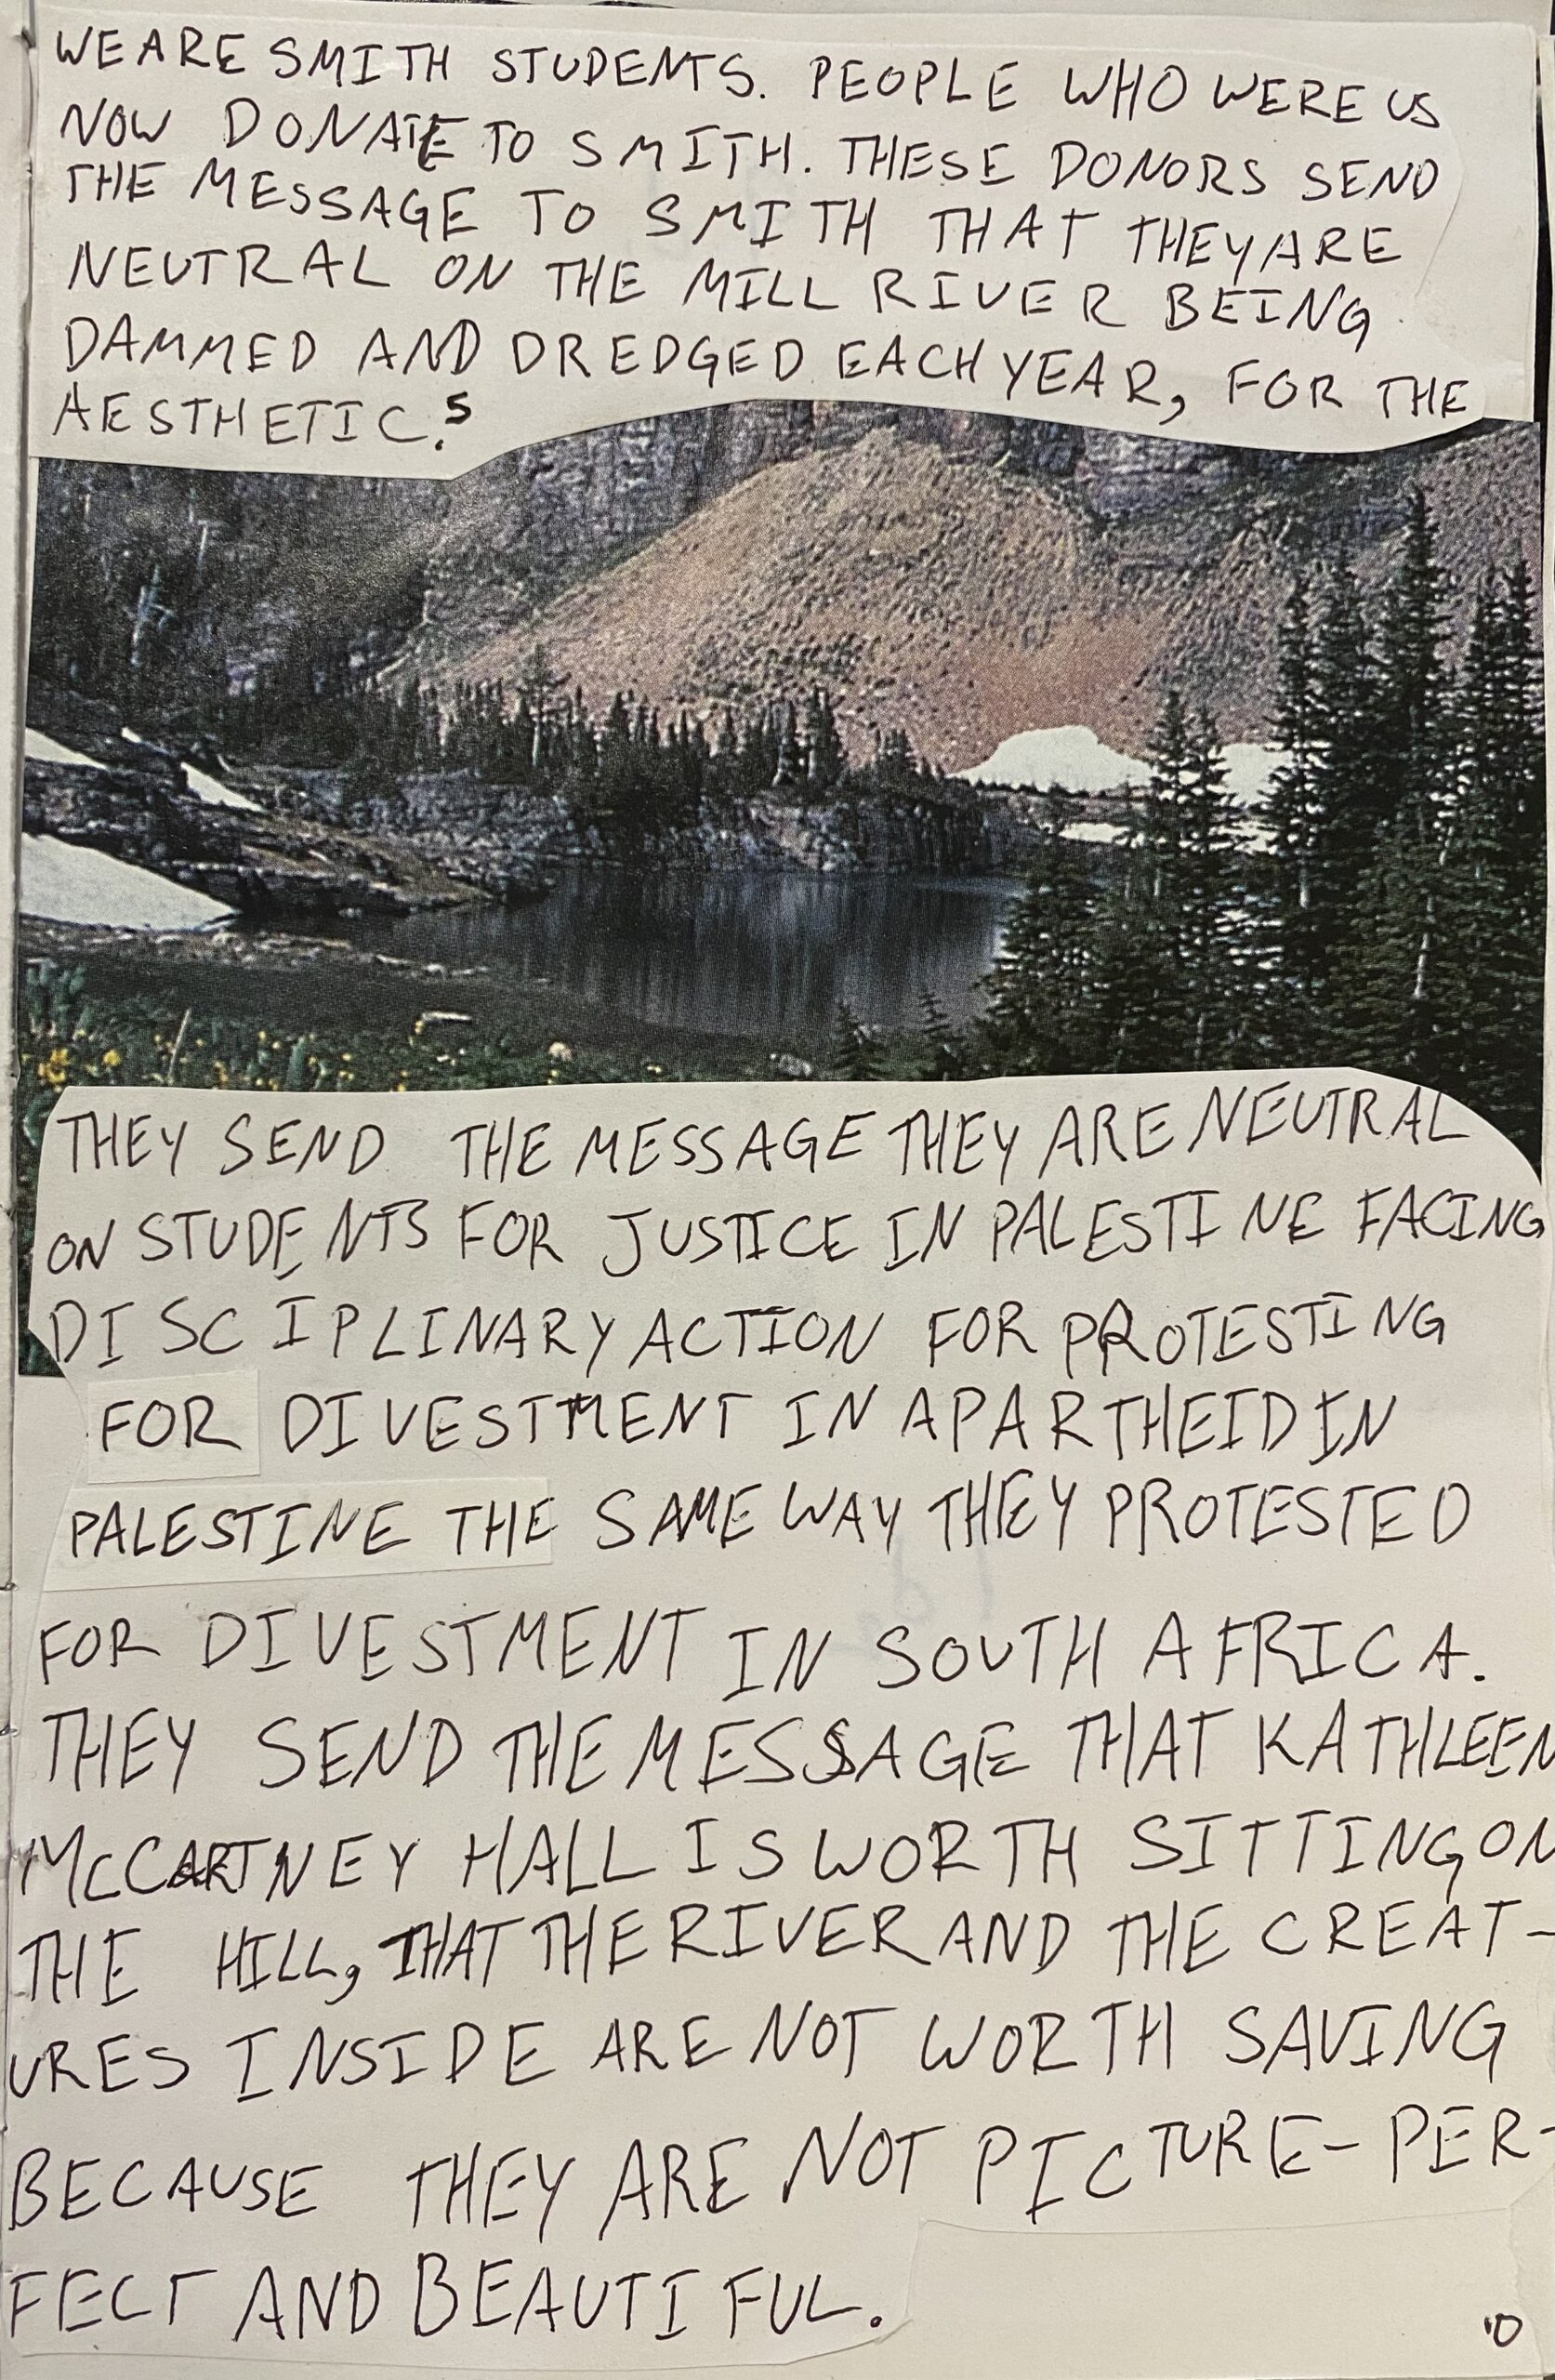 WE ARE SMITH STUDENTS. PEOPLE WHO WERE US
NOW DONATE TO SMITH. THESE DONORS SEND
THE MESSAGE TO SMITH THAT THEY ARE
NEUTRAL ON THE MILL RIVER BEING
DAMMED AND DREDGED EACH YEAR, FOR THE
AESTHETIC.⁵
THEY SEND THE MESSAGE THEY ARE NEUTRAL
ON STUDENTS FOR JUSTICE IN PALESTINE FACING
DISCIPLINARY ACTION FOR PROTESTING
FOR DIVESTMENT IN APARTHEID IN
PALESTINE THE SAME WAY THEY PROTESTED
FOR DIVESTMENT IN SOUTH AFRICA.
THEY SEND THE MESSAGE THAT KATHLEEN
McCARTNEY HALL IS WORTH SITTING ON
THE HILL, THAT THE RIVER AND THE CREAT-
URES INSIDE ARE NOT WORTH SAVING
BECAUSE THEY ARE NOT PICTURE-PER-
FECT AND BEAUTIFUL.
10